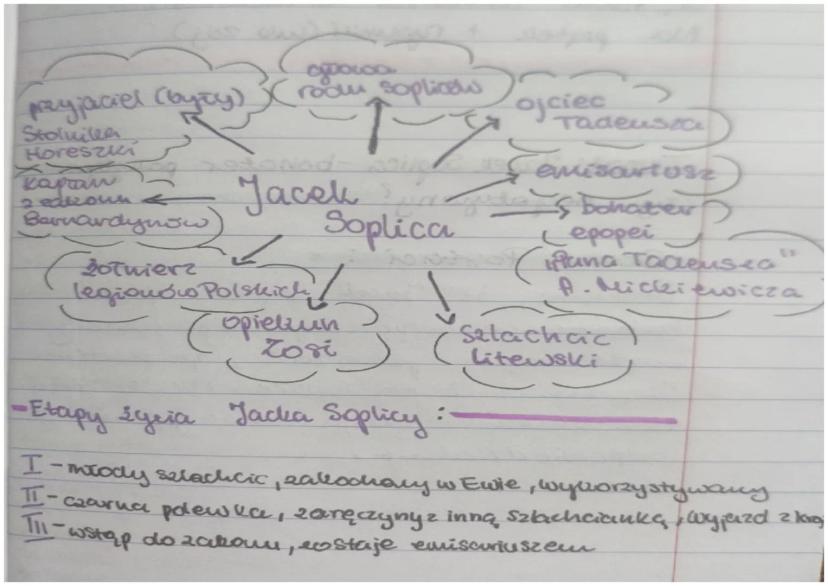 przyjaciel (były)
Stolnika
Horeszki
głowa
rodu Sopliców
ojciec
Tadeusza
emisariusz
bohater
epopei
"Pana Tadeusza"
A. Mickiewicza
kapłan
z zakonu
Bernardynów
Jacek
Soplica
żołnierz
legionów Polskich
opiekun
Zosi
szlachcic
litewski
- Etapy życia Jacka Soplicy :
I - młody szlachcic, zakochany w Ewie, wykorzystywany
II - czarna polewka, zaręczyny z inną szlachcianką, wyjazd z kraj
III - wstąp do zakonu, zostaje emisariuszem